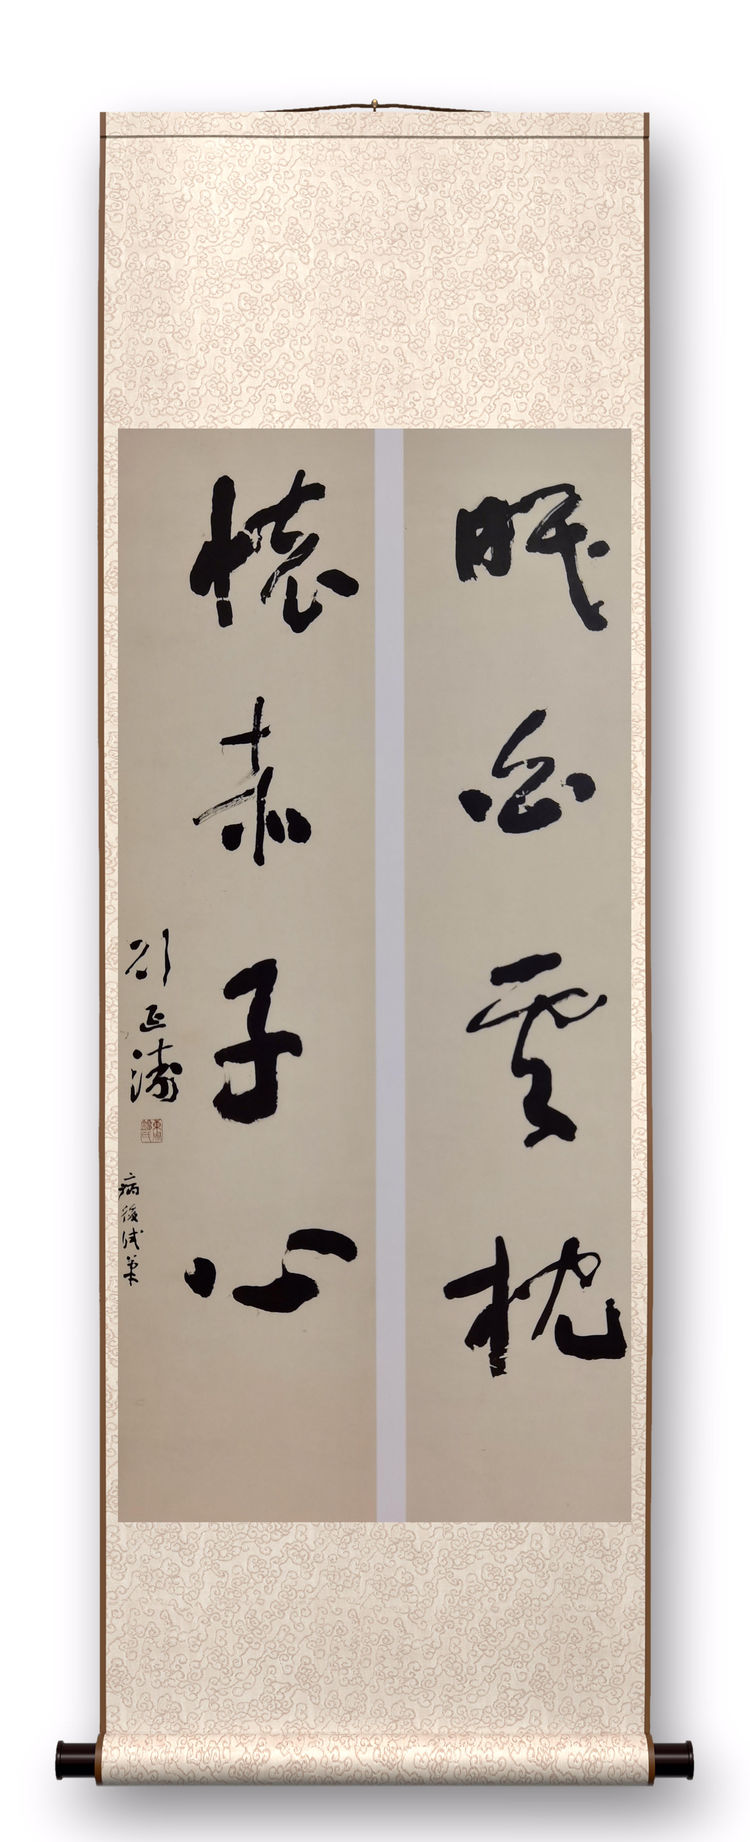 眠白雲枕
懷赤子心
劉延濤
病後試筆